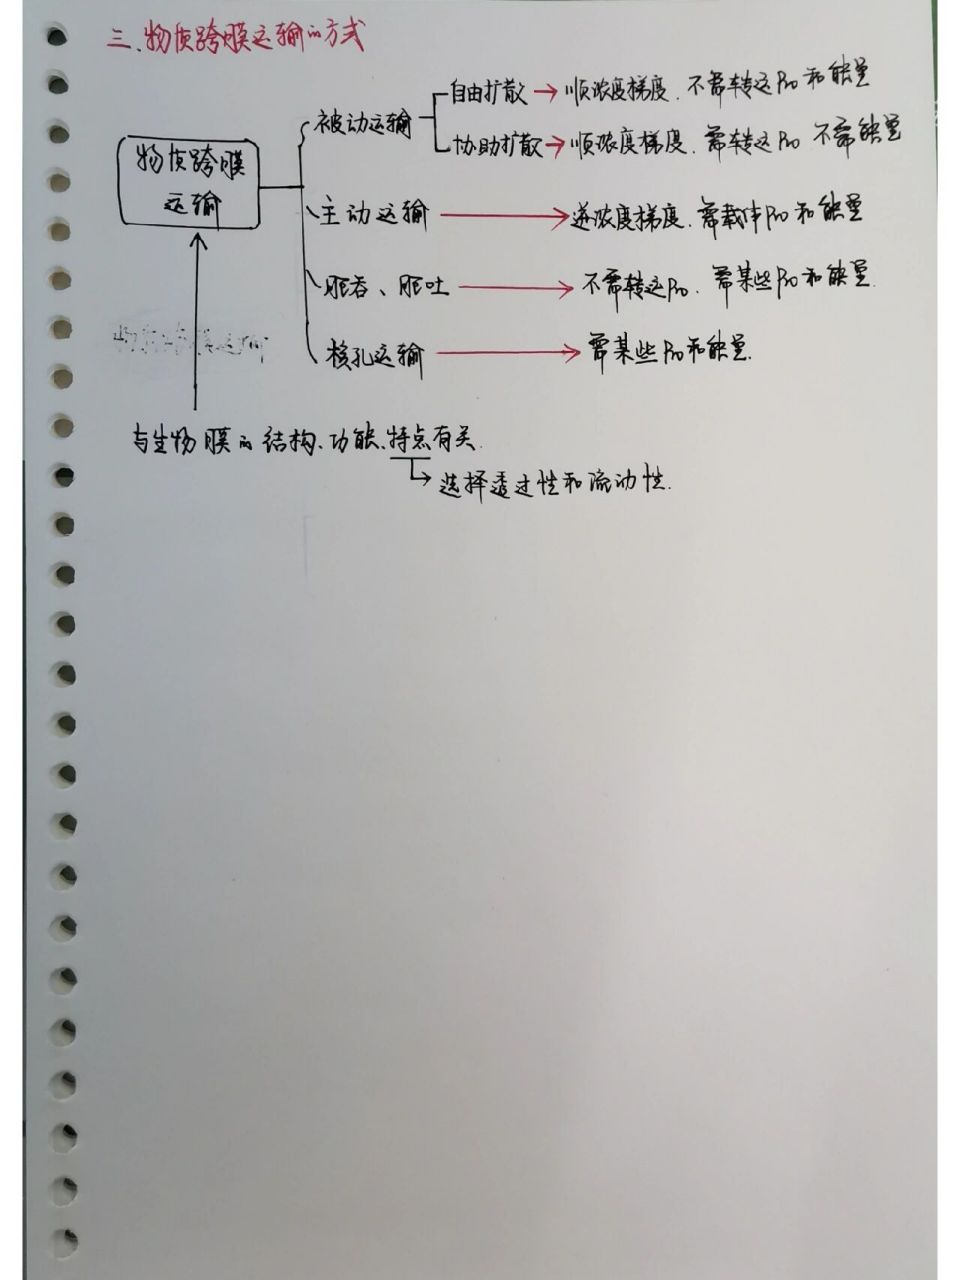 三、物质跨膜运输的方式
物质跨膜
运输
被动运输
自由扩散→顺浓度梯度、不需转运Pro和能量
协助扩散→顺浓度梯度、需转运Pro 不需能量
主动运输→逆浓度梯度、需载体Pro和能量
胞吞、胞吐→不需转运Pro、需某些Pro和能量.
核孔运输→需某些Pro和能量.
与生物膜的结构、功能、特点有关.
→选择透过性和流动性.